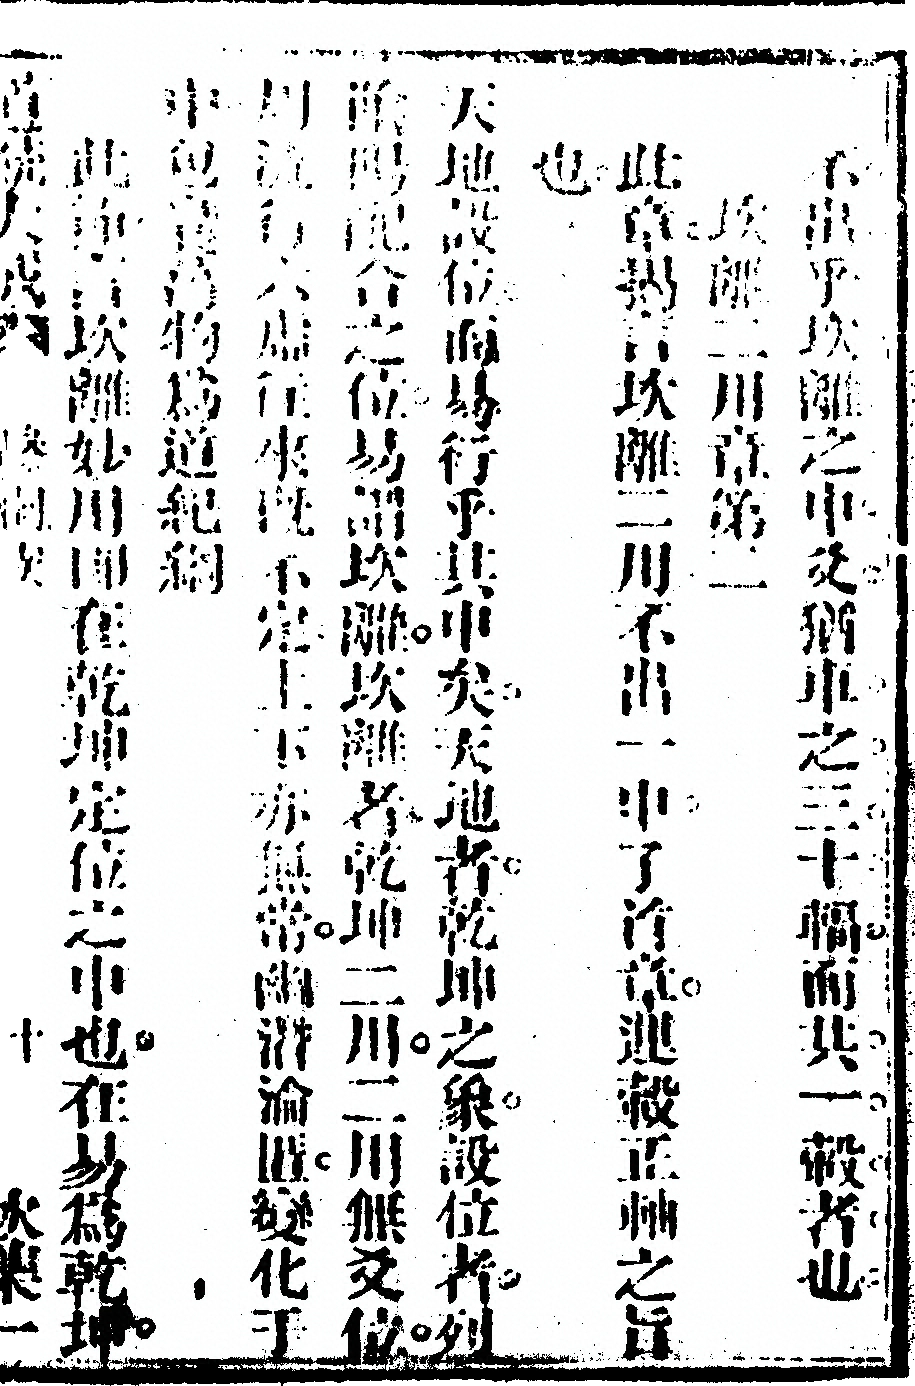 不出乎坎離之中爻猶車之三十輻而共一轂者也
坎離二用章第二
此章揭言坎離二用不出一中了首章運轂正軸之旨
也
天地設位而易行乎其中矣天地者乾坤之象設位者列
陰陽配合之位易謂坎離坎離者乾坤二用二用無爻位
周流行六虛往來旣不定上下亦無常幽潛淪匿變化于
中包囊萬物爲道紀綱
此節言坎離妙用卽在乾坤定位之中也在易爲乾坤